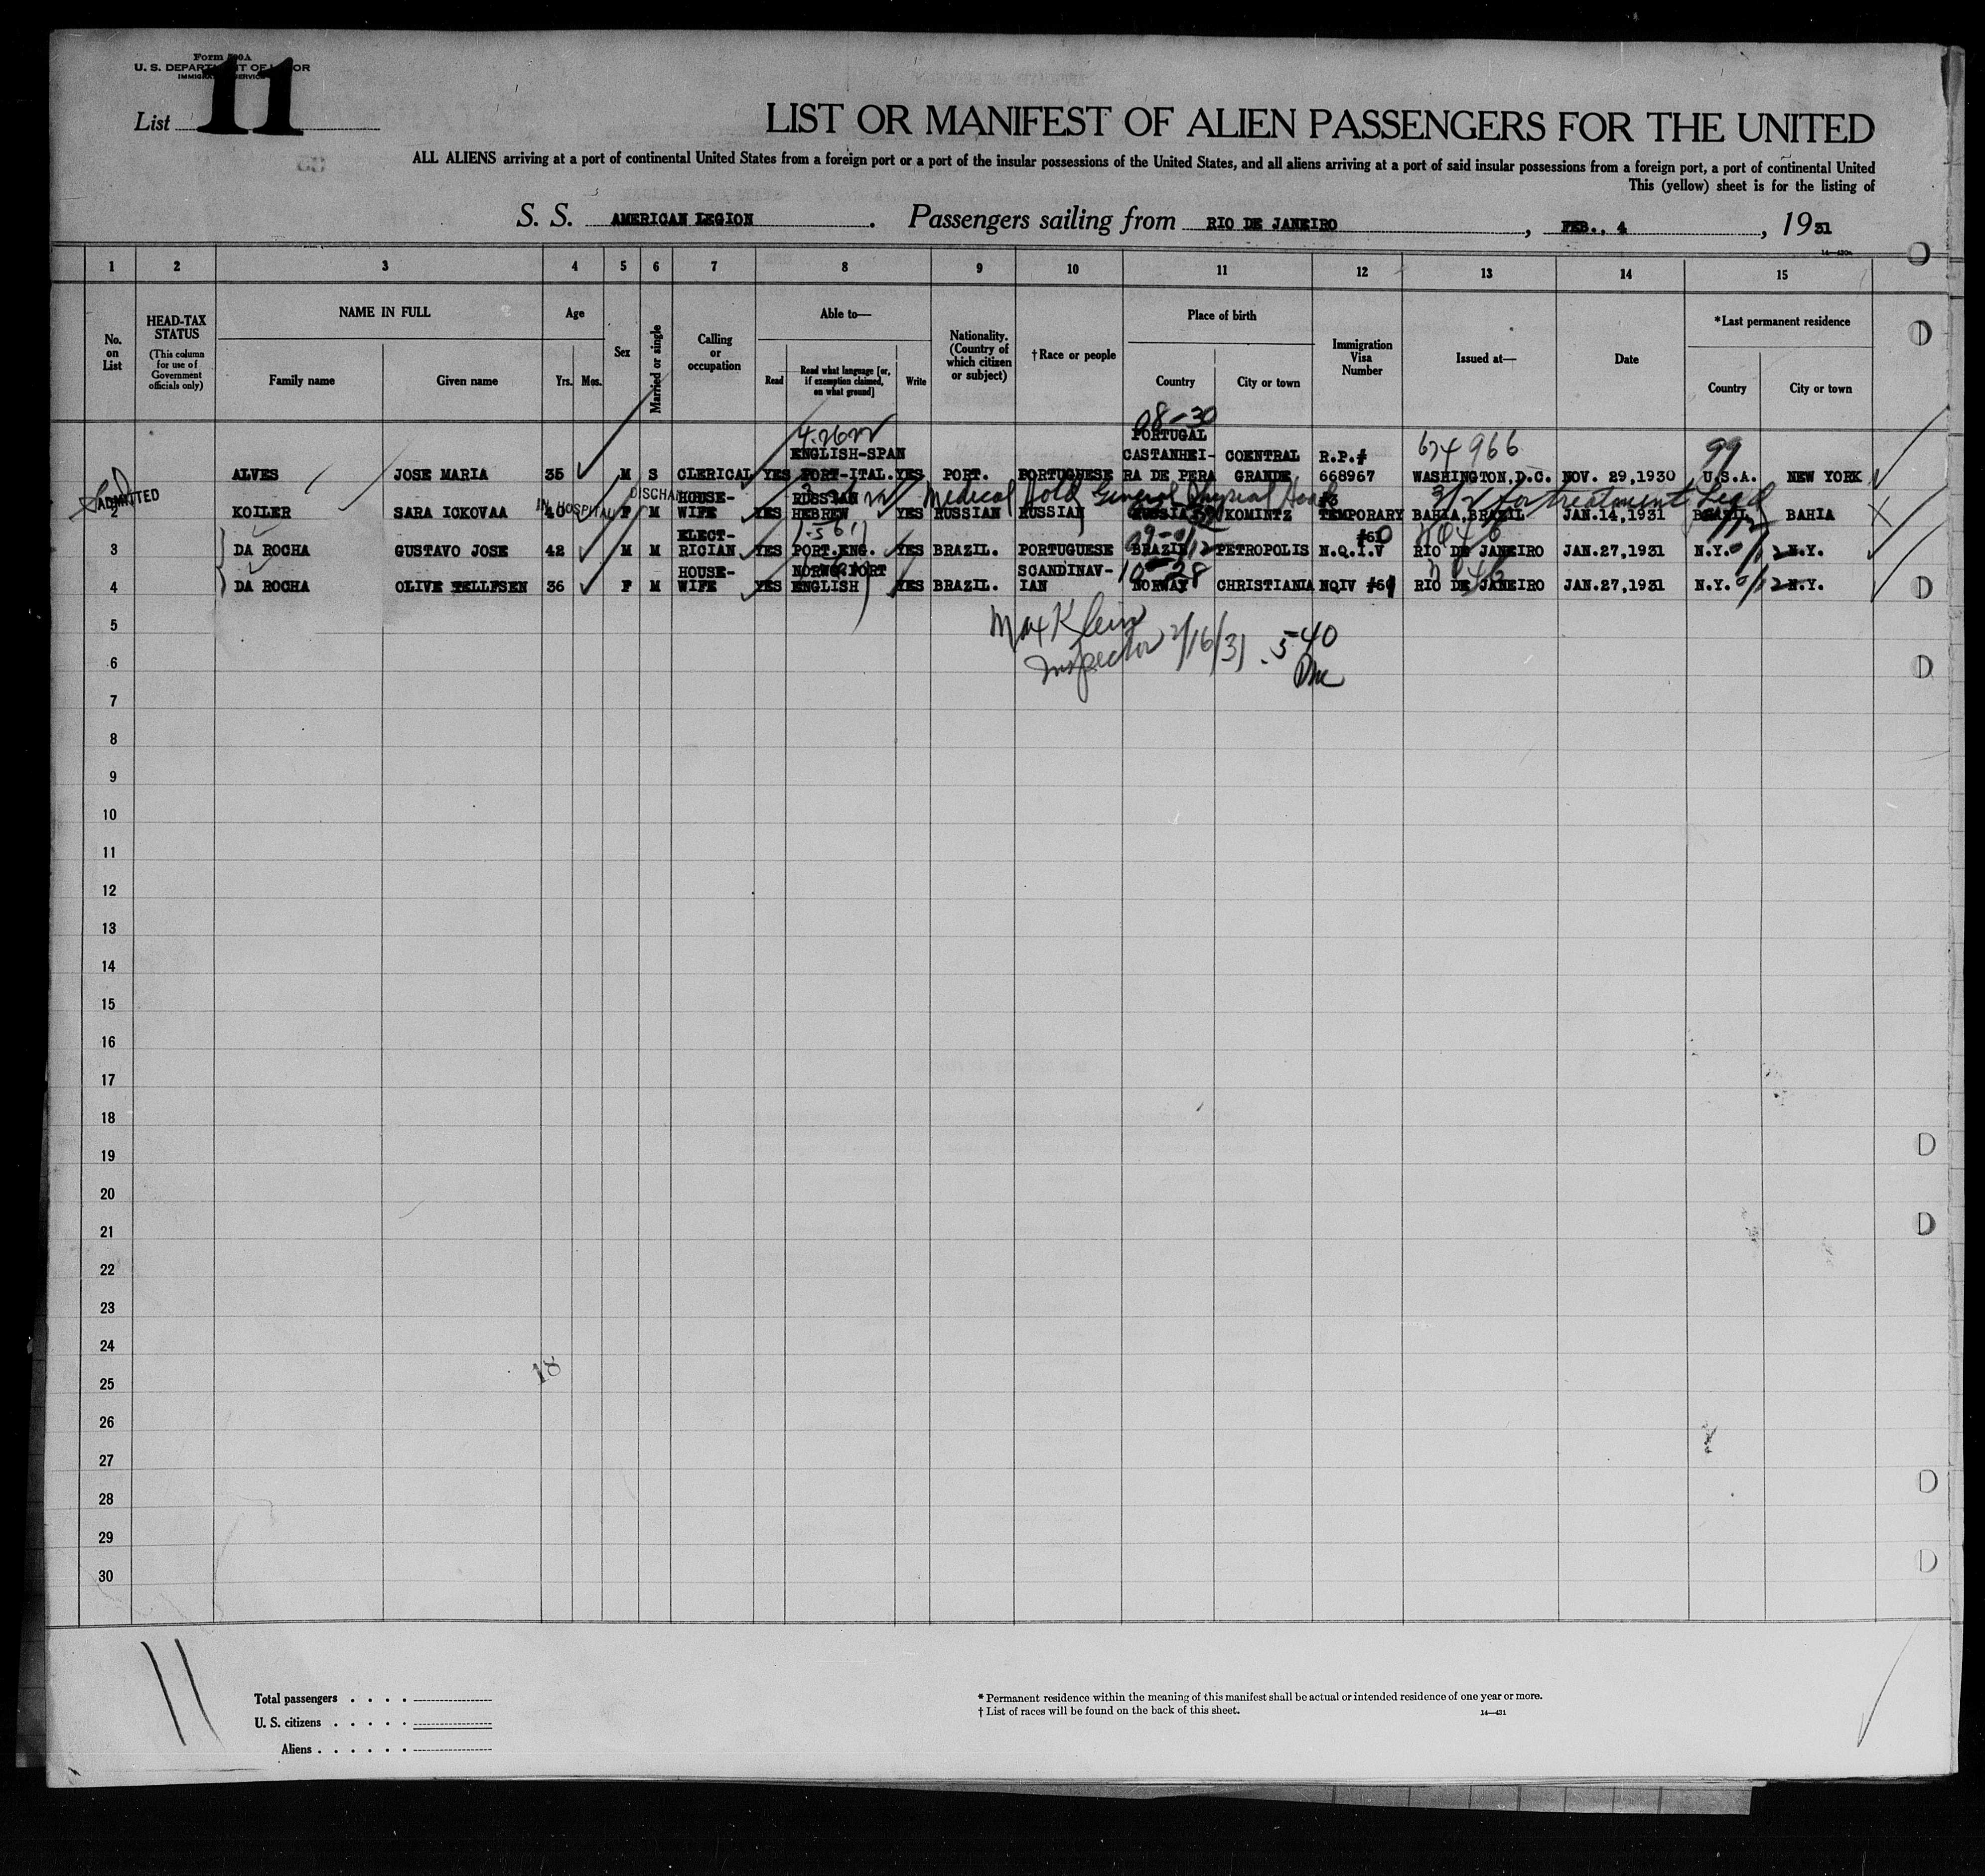 Form 500A
U. S. DEPARTMENT OF LABOR
IMMIGRATION SERVICE
List 11
LIST OR MANIFEST OF ALIEN PASSENGERS FOR THE UNITED
ALL ALIENS arriving at a port of continental United States from a foreign port or a port of the insular possessions of the United States, and all aliens arriving at a port of said insular possessions from a foreign port, a port of continental United
This (yellow) sheet is for the listing of
S. S. AMERICAN LEGION. Passengers sailing from RIO DE JANEIRO, FEB., 4, 1931
1 2 3 4 5 6 7 8 9 10 11 12 13 14 15
No. on List
HEAD-TAX STATUS
(This column for use of Government officials only)
NAME IN FULL
Family name Given name
Age
Yrs. Mos.
Sex
Married or single
Calling or occupation
Able to—
Read
Read what language [or, if exemption claimed, on what ground]
Write
Nationality. (Country of which citizen or subject)
†Race or people
Place of birth
Country City or town
Immigration Visa Number
Issued at—
Date
*Last permanent residence
Country City or town
08-30
4.26
PORTUGAL
624966
99
ENGLISH-SPAN CASTANHEI- COENTRAL R.P.#
ALVES JOSE MARIA 35 M S CLERICAL YES PORT-ITAL. YES PORT. PORTUGUESE RA DE PERA GRANDE 668967 WASHINGTON,D.C. NOV. 29,1930 U.S.A. NEW YORK
ADMITTED
IN HOSPITAL
HOUSE- RUSSIAN Medical Hold General Physical #3 3/2 for treatment
2 KOILER SARA ICKOVAA 40 F M WIFE YES HEBREW YES RUSSIAN RUSSIAN RUSSIA KOMINTZ TEMPORARY BAHIA,BRAZIL JAN.14,1931 BRAZIL BAHIA
ELECT- #60
3 DA ROCHA GUSTAVO JOSE 42 M M RICIAN YES PORT.ENG. YES BRAZIL. PORTUGUESE BRAZIL PETROPOLIS N.Q.I.V RIO DE JANEIRO JAN.27,1931 N.Y. N.Y.
HOUSE- NORWG-PORT SCANDINAV-
4 DA ROCHA OLIVE TELLFSEN 36 F M WIFE YES ENGLISH YES BRAZIL. IAN NORWAY CHRISTIANIA NQIV #61 RIO DE JANEIRO JAN.27,1931 N.Y. N.Y.
5
Max Klein
Inspector 2/16/31 540
6
7
8
9
10
11
12
13
14
15
16
17
18
19
20
21
22
23
24
18
25
26
27
28
29
30
11
Total passengers
U. S. citizens
Aliens
* Permanent residence within the meaning of this manifest shall be actual or intended residence of one year or more.
† List of races will be found on the back of this sheet.
14—431